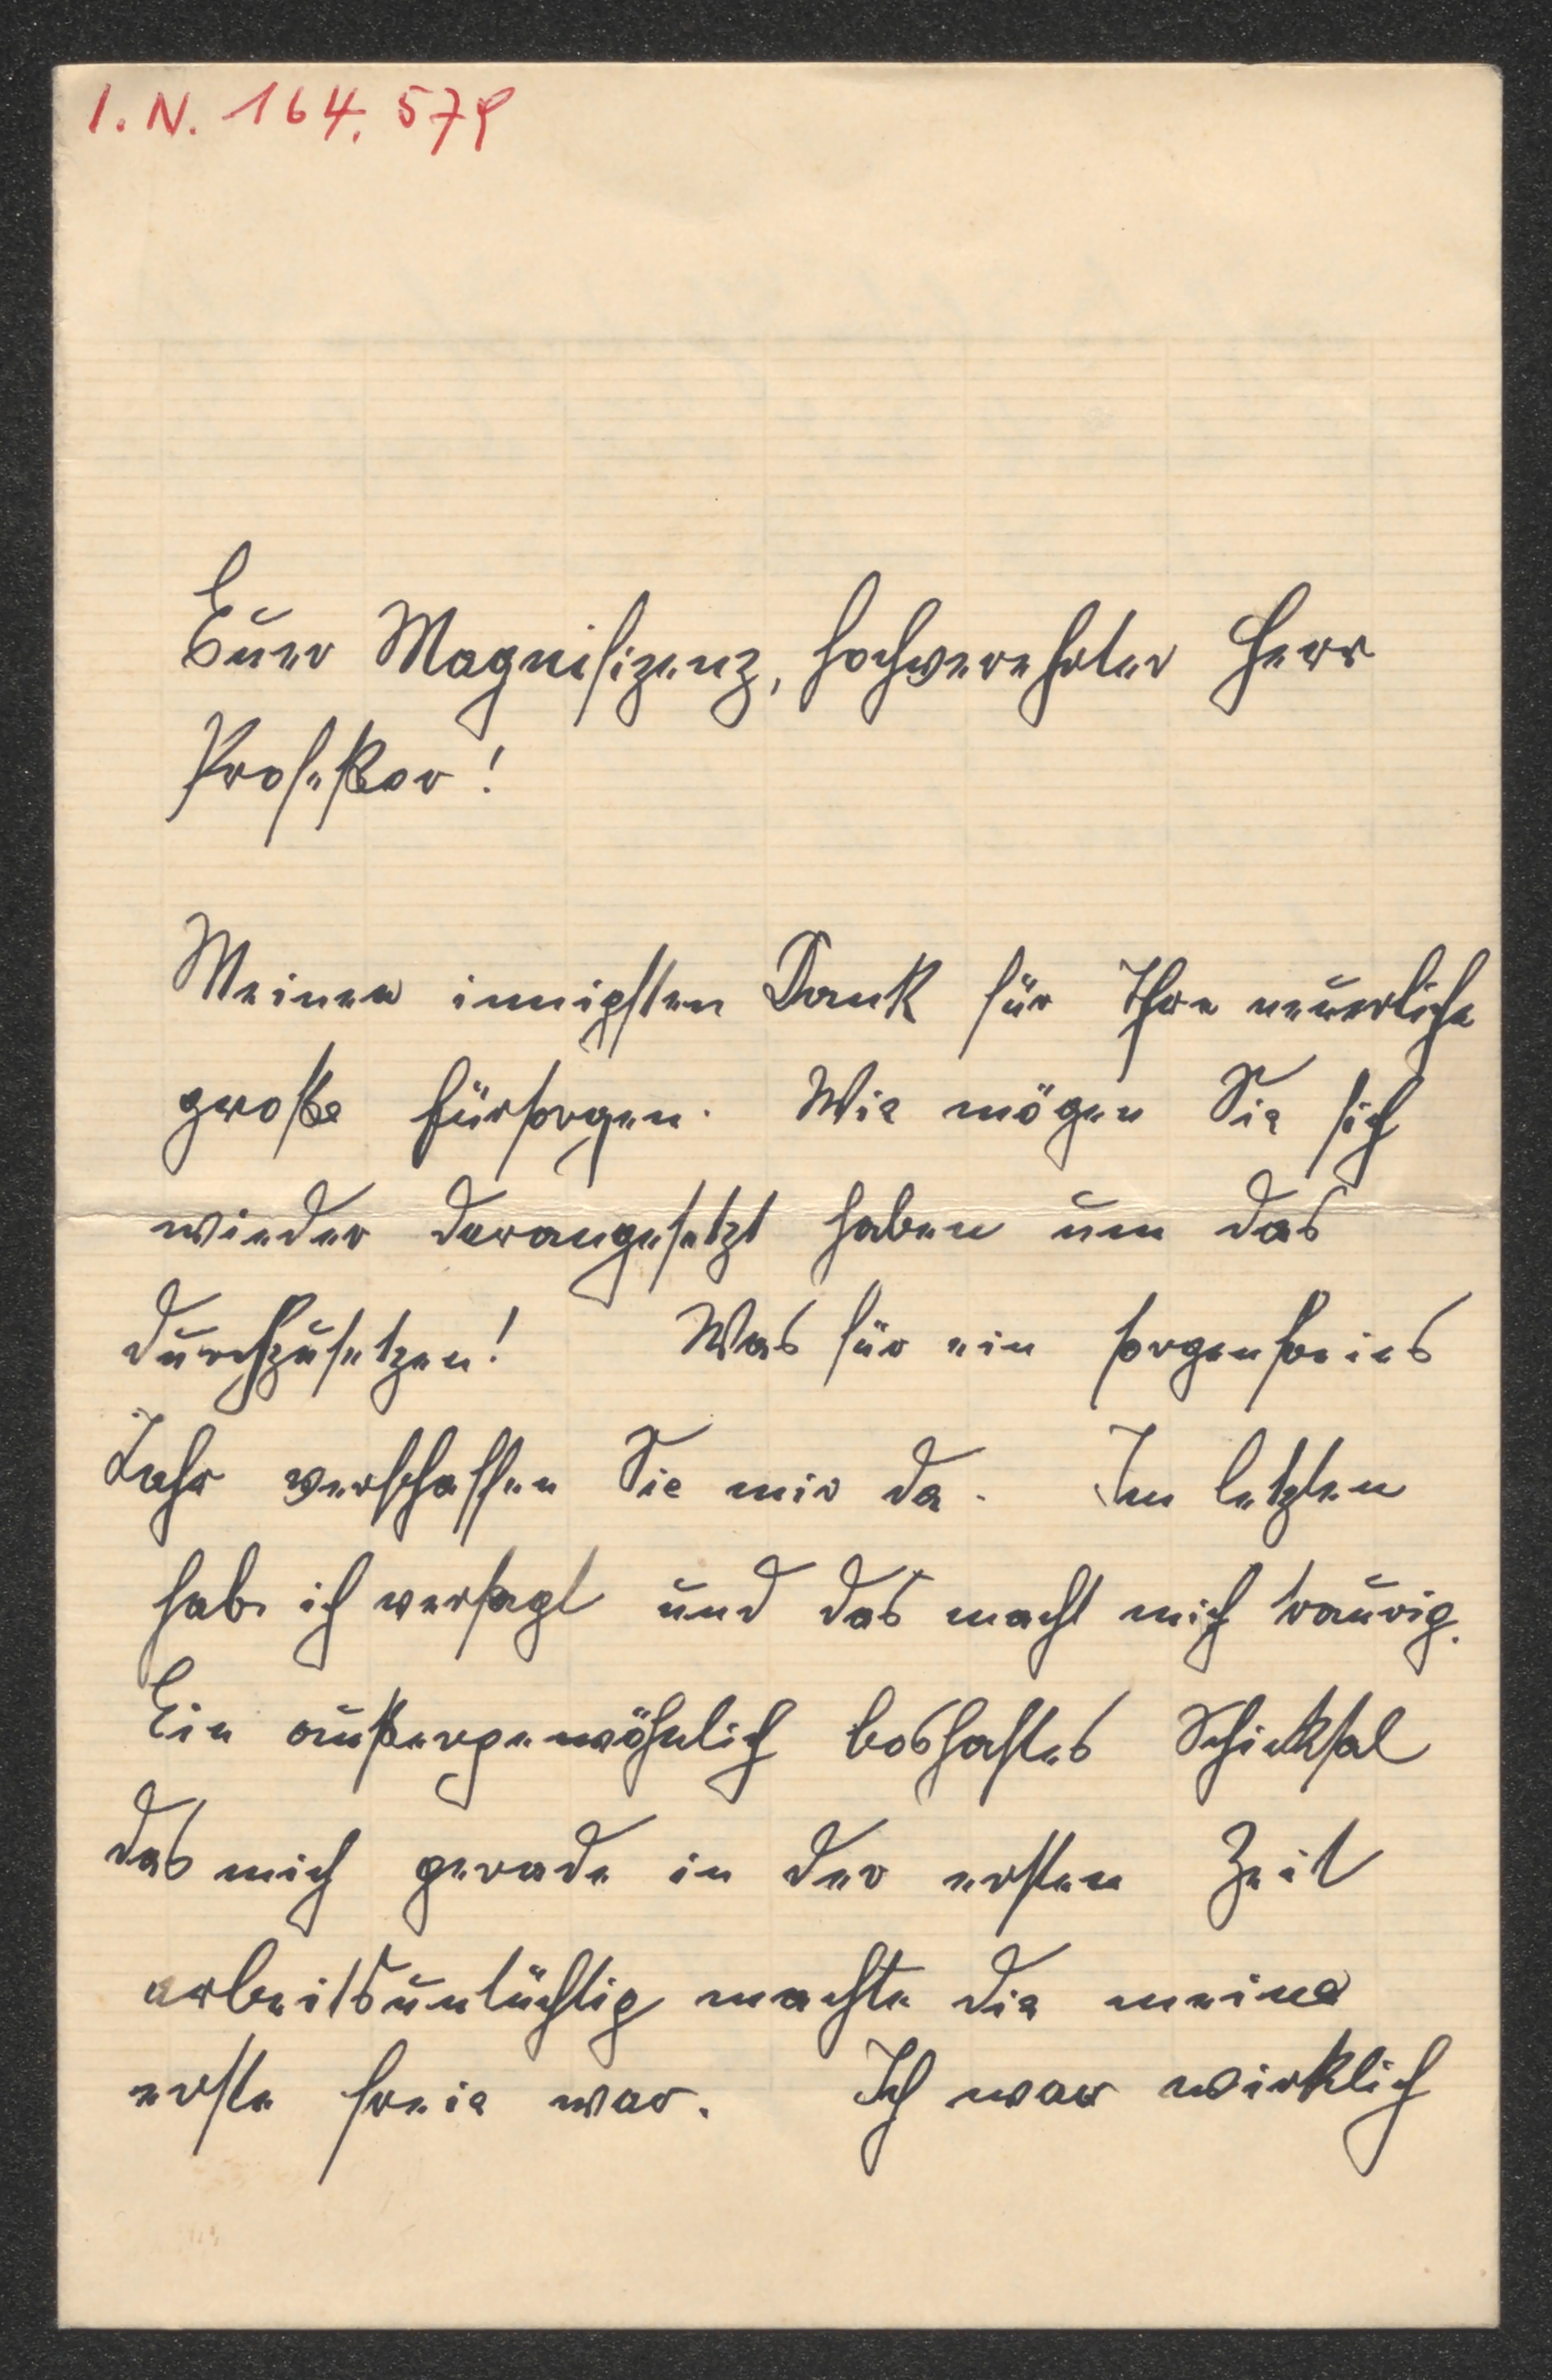 I. N. 164. 579
Euer Magnifizenz, hochverehrter Herr
Profeßor!
Meinen innigsten Dank für Ihre neuerliche
große Fürsorgen. Wie mögen Sie sich
wieder darangesetzt haben um das
durchzusetzen! Was für ein sorgenfreies
Jahr verschaffen Sie mir da. Im letzten
hab ich versagt und das macht mich traurig.
Ein außergewöhnlich boshaftes Schicksal
das mich gerade in der ersten Zeit
arbeitsuntüchtig machte die meine
erste freie war. Ich war wirklich